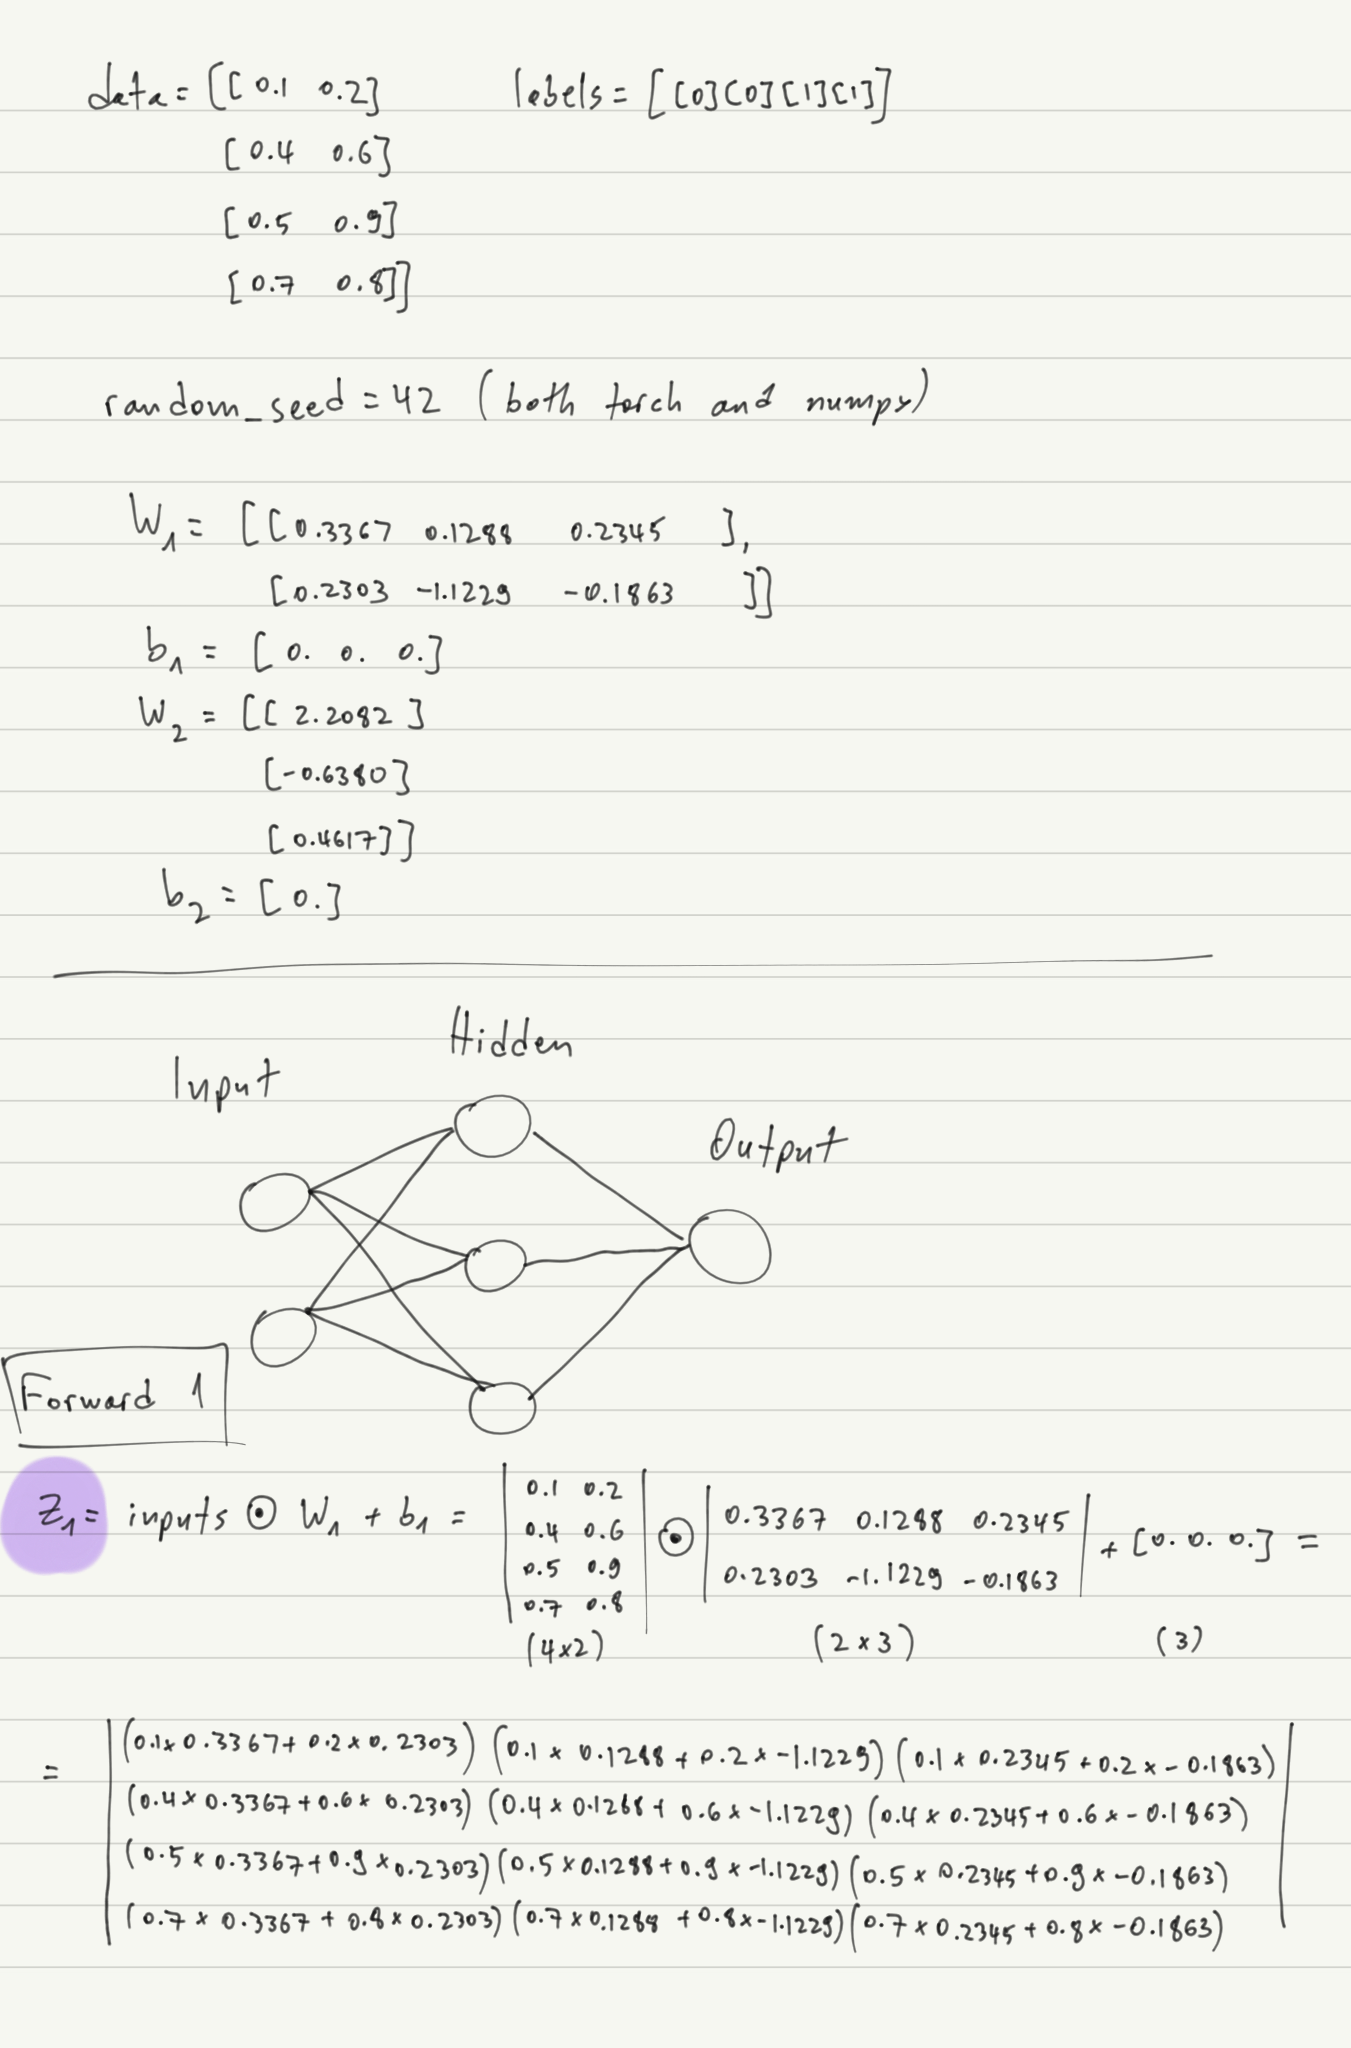 data = [[ 0.1 0.2] labels = [[0][0][1][1]]
[ 0.4 0.6]
[ 0.5 0.9]
[ 0.7 0.8]]
random_seed = 42 (both torch and numpy)
W₁ = [[0.3367 0.1288 0.2345 ],
[0.2303 -1.1229 -0.1863 ]]
b₁ = [ 0. 0. 0.]
W₂ = [[ 2.2082 ]
[-0.6380]
[ 0.4617]]
b₂ = [ 0.]
Hidden
Input
Output
Forward 1
Z₁ = inputs ⊙ W₁ + b₁ = | 0.1 0.2 | ⊙ | 0.3367 0.1288 0.2345 | + [0. 0. 0.] =
0.4 0.6
0.5 0.9 0.2303 -1.1229 -0.1863
0.7 0.8
(4×2) (2×3) (3)
= | (0.1×0.3367+0.2×0.2303) (0.1×0.1288+0.2×-1.1229) (0.1×0.2345+0.2×-0.1863) |
(0.4×0.3367+0.6×0.2303) (0.4×0.1268+0.6×-1.1229) (0.4×0.2345+0.6×-0.1863)
(0.5×0.3367+0.9×0.2303) (0.5×0.1288+0.9×-1.1229) (0.5×0.2345+0.9×-0.1863)
(0.7×0.3367+0.8×0.2303) (0.7×0.1288+0.8×-1.1229) (0.7×0.2345+0.8×-0.1863)